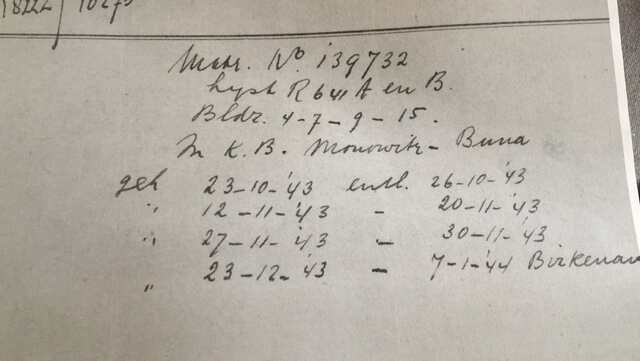 18222/10273
Matr. No 139732
Lyst R 641 A en B.
Bldz. 4-7-9-15.
In K.B. Monowitz-Buna
geh 23-10-'43 entl. 26-10-'43
" 12-11-'43 - 20-11-'43
" 27-11-'43 - 30-11-'43
" 23-12-'43 - 7-1-'44 Birkenau